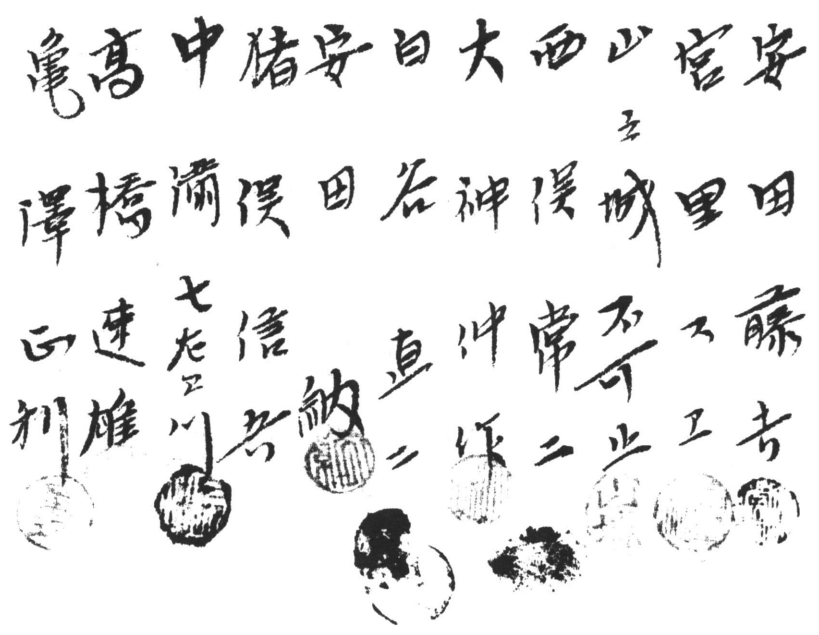 安田藤吉
宮里又エ
山城不可止
西俣常二
大神仲作
白谷直二
安田納
猪俣信吾
中浦七左エ川
高橋速雄
亀澤正利